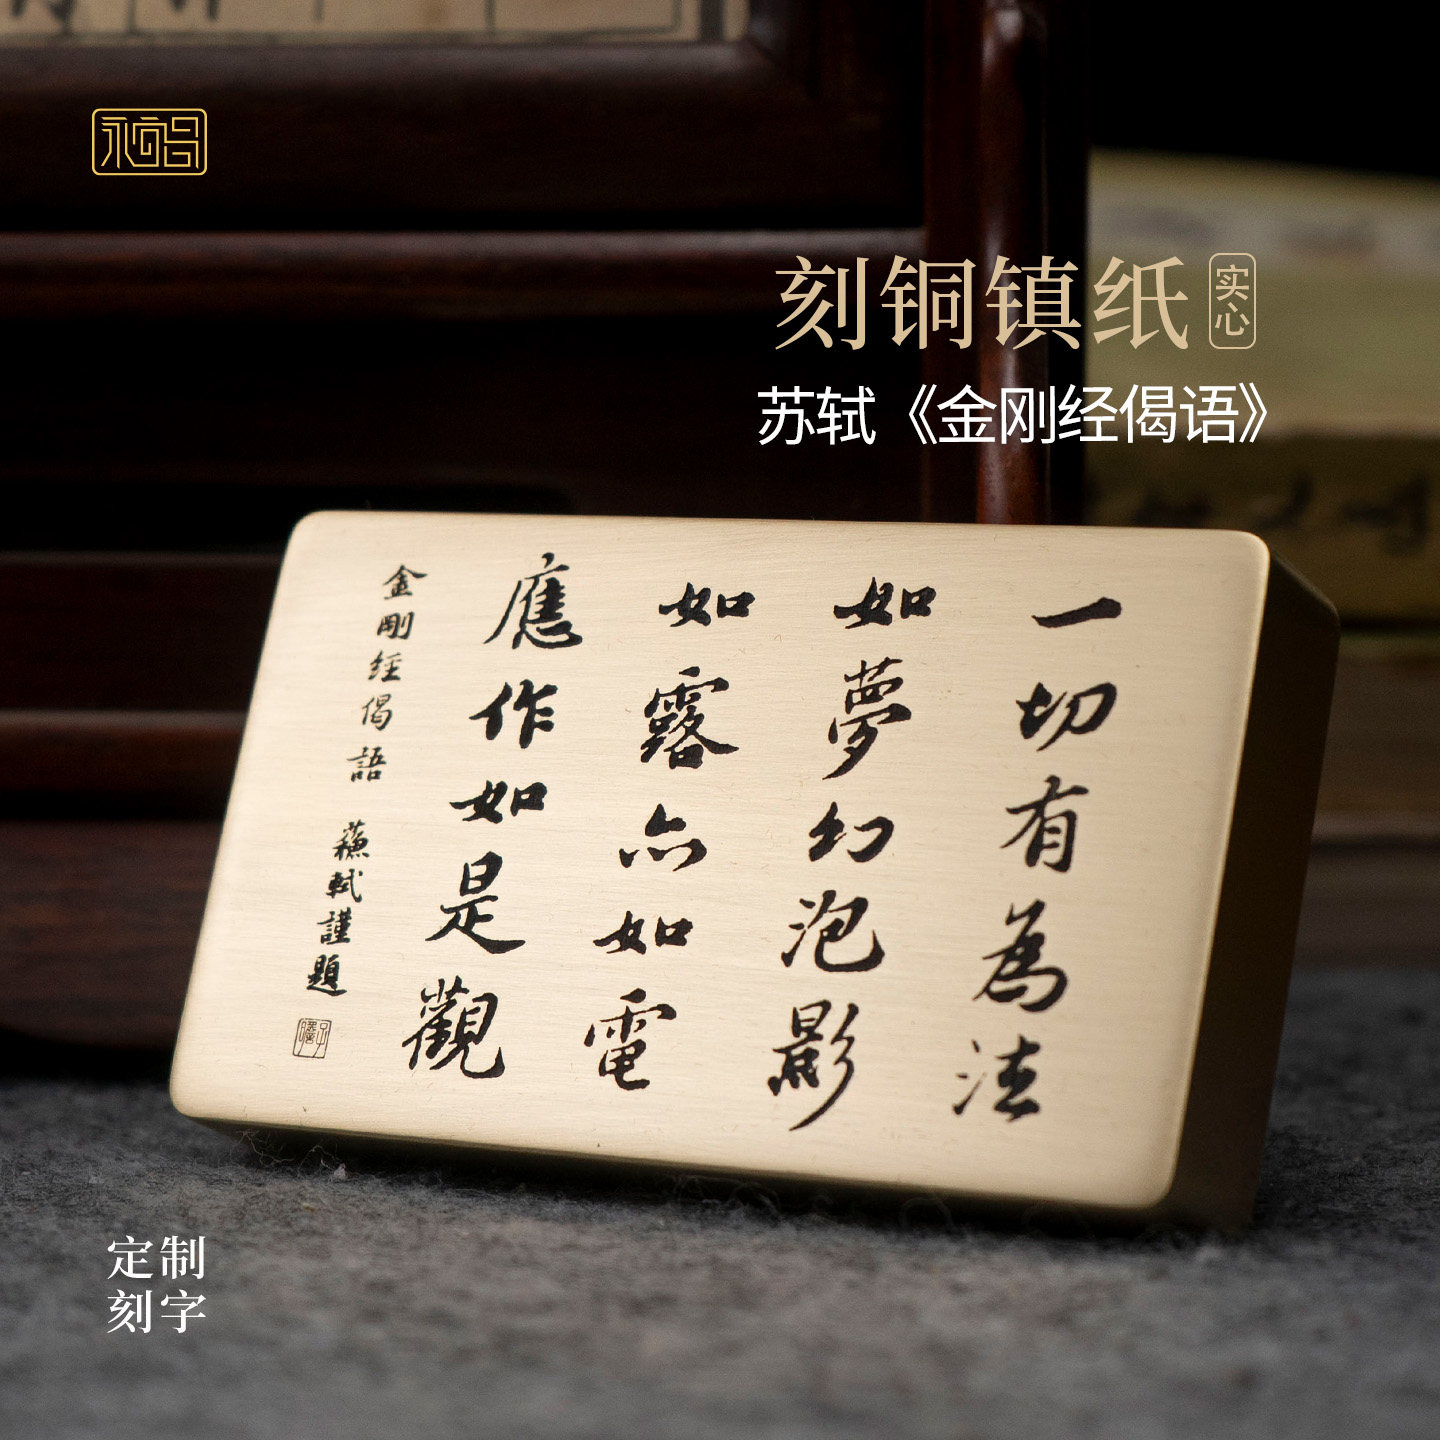 刻铜镇纸
实心
苏轼《金刚经偈语》
一切有為法
如夢幻泡影
如露亦如電
應作如是觀
金剛經偈語 蘇軾謹題
子瞻
定制
刻字